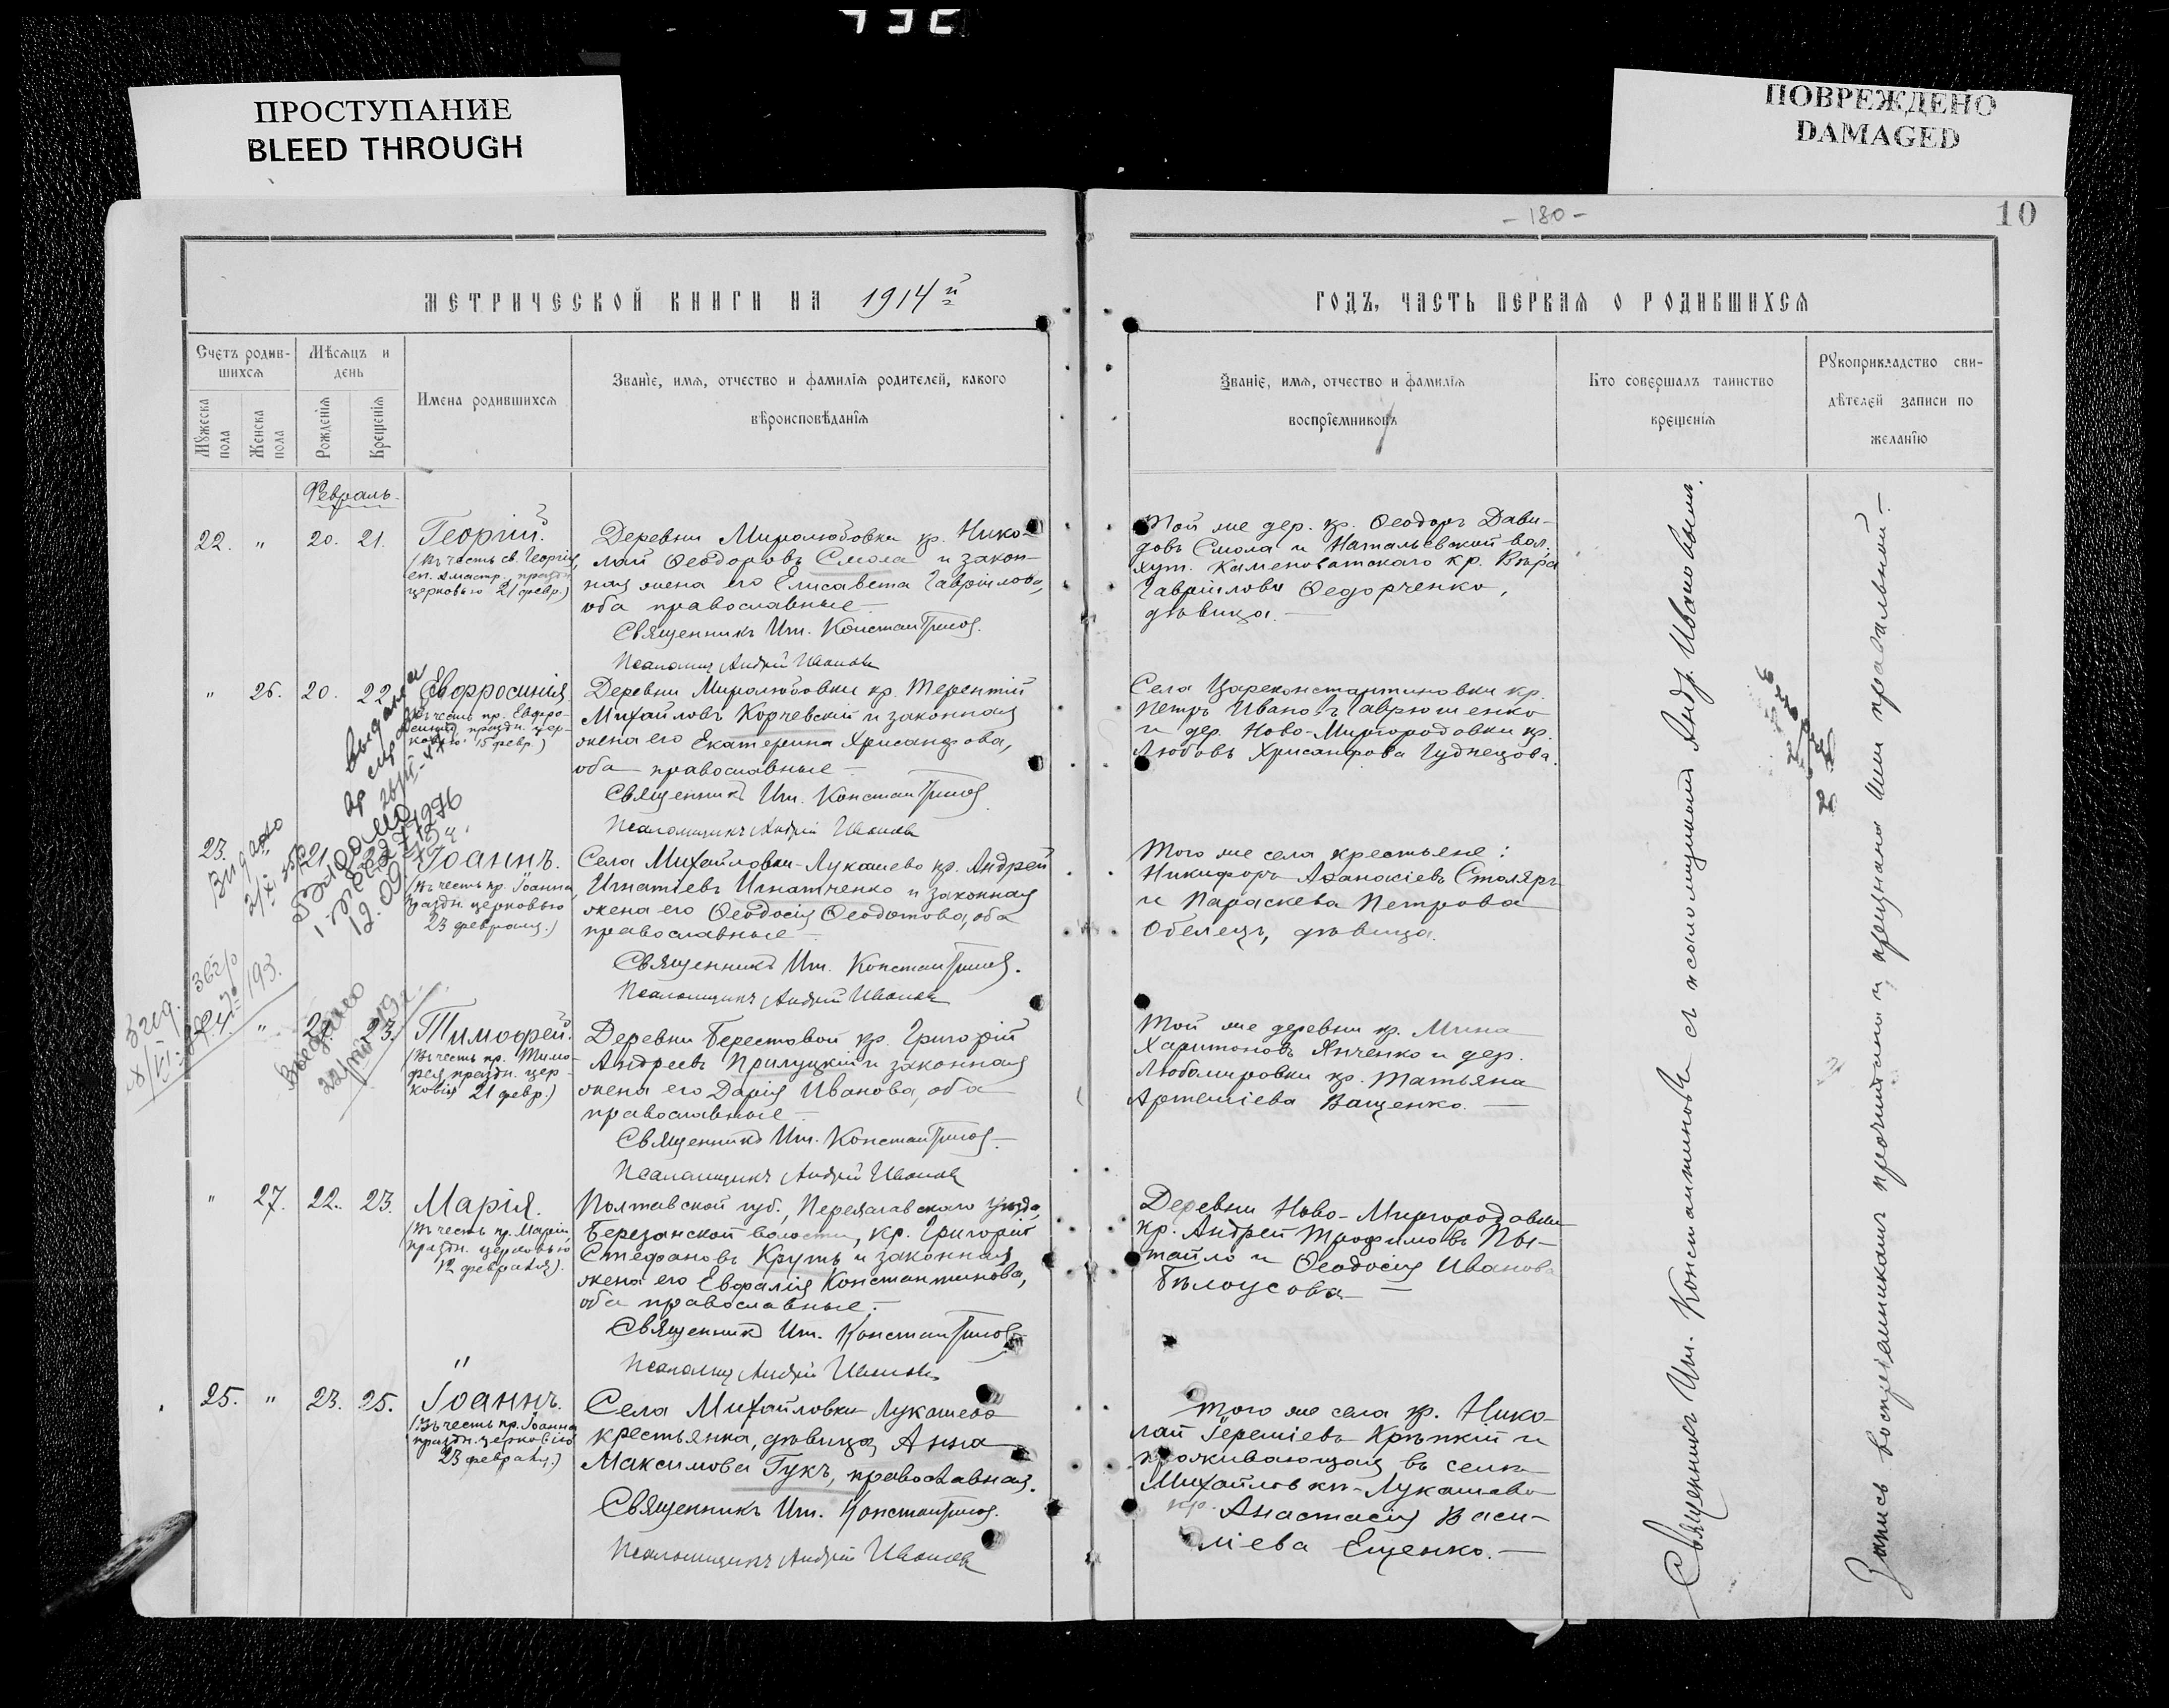 ПРОСТУПАНИЕ
BLEED THROUGH
ПОВРЕЖДЕНО
DAMAGED
- 180 -
10
МЕТРИЧЕСКОЙ КНИГИ НА 1914й
ГОДЪ, ЧАСТЬ ПЕРВАЯ О РОДИВШИХСЯ
Счетъ родив-
шихся
Мѣсяцъ и
день
Мужеска пола
Женска пола
Рожденія
Крещенія
Имена родившихся
Званіе, имя, отчество и фамилія родителей, какого
вѣроисповѣданія
Званіе, имя, отчество и фамилія
воспріемниковъ
Кто совершалъ таинство
крещенія
Рукоприкладство сви-
дѣтелей записи по
желанію
Февраль
22. " 20. 21.
Георгій.
(Въ честь св. Георгія,
еп. Амастр., праздн.
церковью 21 февр.)
Деревни Миролюбовки кр. Нико-
лай Ѳеодоровъ Смола и закон-
ная жена его Елисавета Гавріилова,
оба православные
Священникъ Иг. Константинов.
Псаломщ. Андрей Иванов
Той же дер. кр. Ѳеодоръ Дави-
довъ Смола и Натальевской вол.
хут. Каменоватского кр. Вѣра
Гавріилова Ѳедорченко,
дѣвица.
" 26. 20. 22
Евфросинія
(Въ честь пр. Евфро-
синіи, праздн. цер-
ковью 15 февр.)
Деревни Миролюбовки кр. Терентій
Михайловъ Корчевскій и законная
жена его Екатерина Хрисанфова,
оба православные
Священникъ Иг. Константинов
Псаломщикъ Андрей Иванов
Села Цареконстантиновки кр.
Петръ Ивановъ Гаврюшенко
и дер. Ново-Миргородовки кр.
Любовь Хрисанфова Гуднецова.
23. 21
Іоаннъ.
(Въ честь пр. Іоанна,
праздн. церковью
23 февраля.)
Села Михайловки-Лукашево кр. Андрей
Игнатіевъ Игнатченко и законная
жена его Ѳеодосія Ѳеодотова, оба
православные
Священникъ Иг. Константинов.
Псаломщикъ Андрей Иванов
Того же села крестьяне:
Никифоръ Аѳанасіевъ Столяръ
и Параскева Петрова
Обелецъ, дѣвица.
" 23.
Тимофей.
(Въ честь пр. Тимо-
фея праздн. цер-
ковію 21 февр.)
Деревни Берестовой кр. Григорій
Андреевъ Прилуцкій и законная
жена его Дарія Иванова, оба
православные
Священникъ Иг. Константинов
Псаломщикъ Андрей Иванов
Той же деревни кр. Мина
Харитоновъ Янченко и дер.
Любомировки кр. Татьяна
Артеміева Ващенко.
" 27. 22. 23.
Марія.
(Въ честь пр. Маріи,
праздн. церковью
12 февраля).
Полтавской губ., Переяславского уѣзда,
Березанской волости, кр. Григорій
Стефановъ Круть и законная
жена его Евфалія Константинова,
оба православные.
Священникъ Иг. Константинов
Псаломщ Андрей Иванов
Деревни Ново-Миргородовки
кр. Андрей Трофимовъ Пы-
тайло и Ѳеодосія Иванова
Бѣлоусова
25. " 23. 25.
Іоаннъ.
(Въ честь пр. Іоанна
праздн. церковію
23 февраля.)
Села Михайловки Лукашево
крестьянка, дѣвица Анна
Максимова Гукъ, православная.
Священникъ Иг. Константинов.
Псаломщикъ Андрей Иванов
Того же села кр. Нико-
лай Іереміевъ Крѣпкій и
проживающая въ селѣ
Михайловки-Лукашево
кр. Анастасія Васи-
ліева Ещенко.
Священникъ Иг. Константиновъ съ псаломщикомъ Андр. Ивановымъ.
Запись воспріемникамъ прочитана и признана ими правильной.